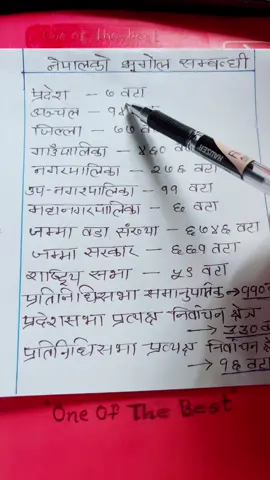 One of The
नेपालको भूगोल सम्बन्धी
प्रदेश – ७ वटा
अञ्चल – १४
जिल्ला – ७७ वटा
गाउँपालिका – ४६० वटा
नगरपालिका – २७६ वटा
उप-नगरपालिका – ११ वटा
महानगरपालिका – ६ वटा
जम्मा वडा संख्या – ६७४६ वटा
जम्मा सरकार – ६६१ वटा
राष्ट्रिय सभा – ५९ वटा
प्रतिनिधिसभा समानुपातिक → ११०
प्रदेशसभा प्रत्यक्ष निर्वाचन क्षेत्र
→ ३३० वटा
प्रतिनिधिसभा प्रत्यक्ष निर्वाचन
→ १६ वटा
"One Of The Best"